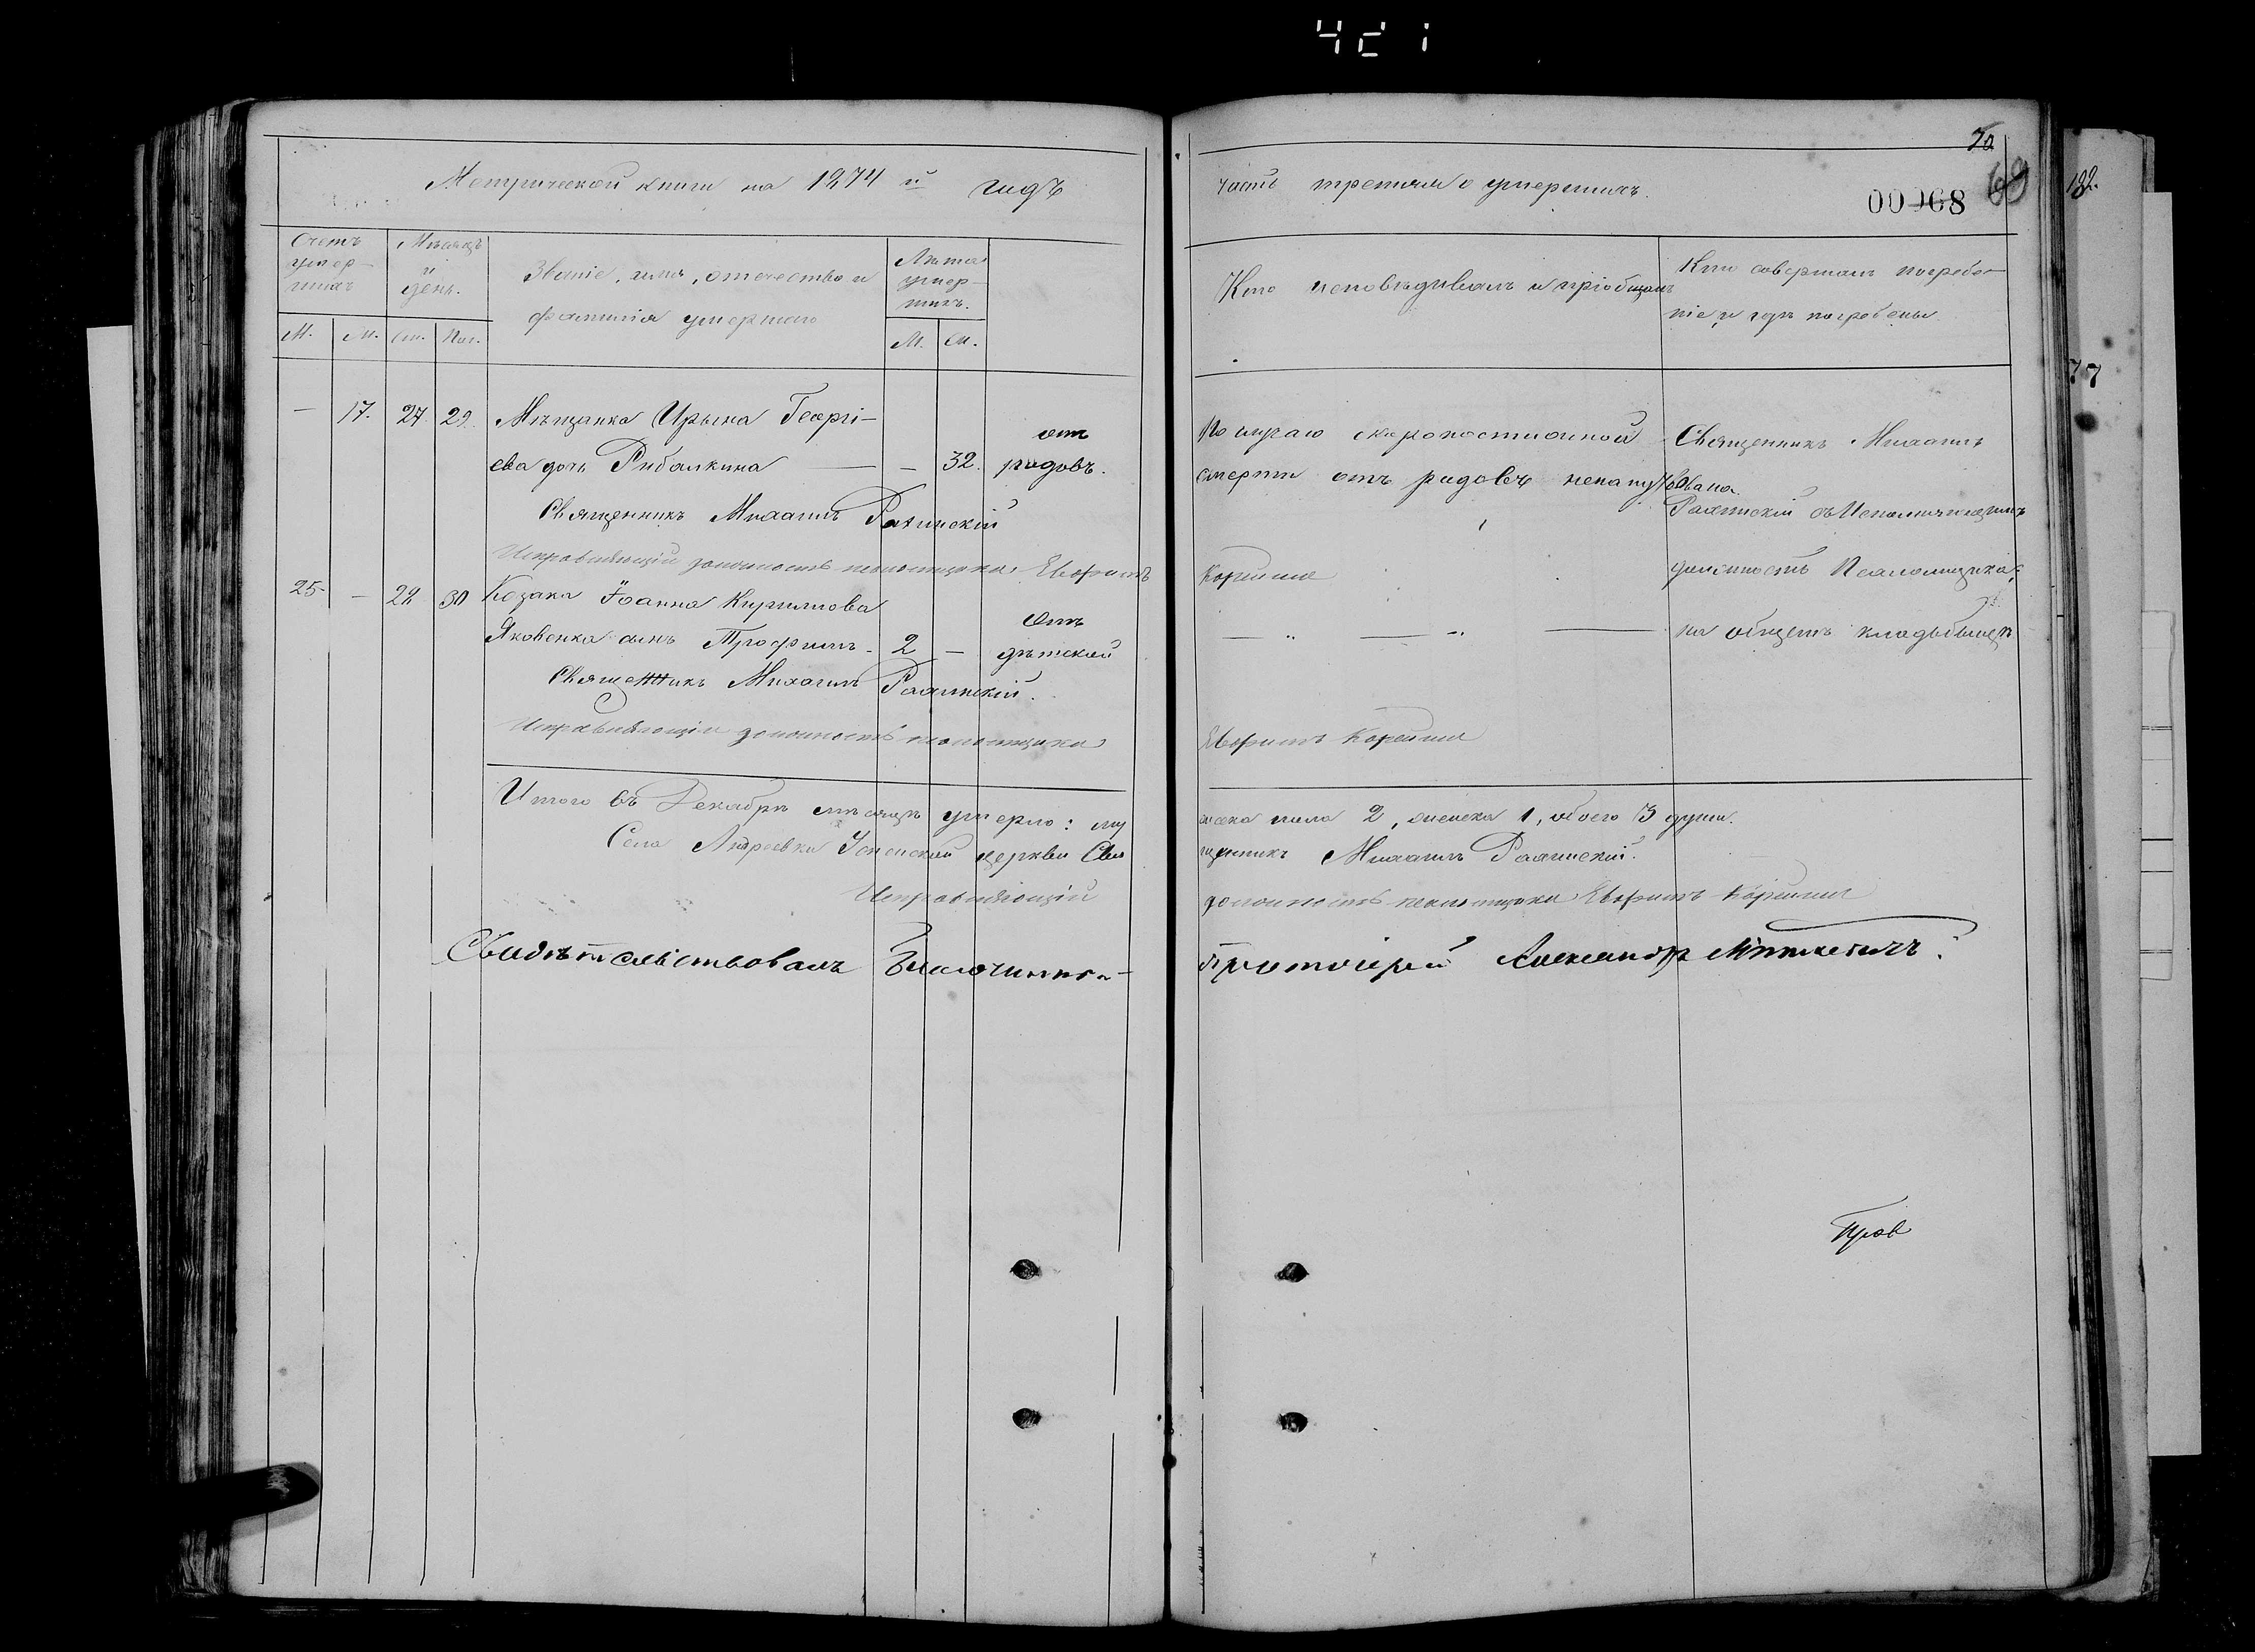 Метрической книги на 1874 й годъ
Счетъ умер-шихъ
Мѣсяцъ и день.
Званіе, имя, отчество и фамилія умершаго
Лѣта умер-шихъ.
М. | Ж. | См. | Пог. | М. | Ж.
— 17. 27. 29. Мѣщанка Ирына Георгі-
ева дочь Рибалкина — — 32. отъ родовъ.
Священникъ Михаилъ
Исправляющій должность псаломщика Евфимъ
25. — 28 30 Козака Іоанна Кирилова
Яковенка сынъ Трофимъ. 2 — Отъ дѣтской
Священникъ Михаилъ
Исправляющій должность псаломщика
Итого въ Декабрѣ мѣсяцѣ умерло: му
Села Андреевки Успенской церкви Свя
Исправляющій
Свидѣтельствовалъ Благочинный
70
часть третяя о умершихъ.
00068
69
Кто исповѣдывалъ и пріобщалъ
Кто совершалъ погребе-
ніе и гдѣ погребены.
По случаю скоропостижной
смерти отъ родовъ ненапутствована.
Священникъ Михаилъ
съ Исполняющимъ
должность Псаломщика
на общемъ кладбищѣ
Евфимъ
жеска пола 2, женска 1, обоего 3 души.
щенникъ Михаилъ
должность псаломщика Евфимъ
Протоіерей Александръ
182.
77